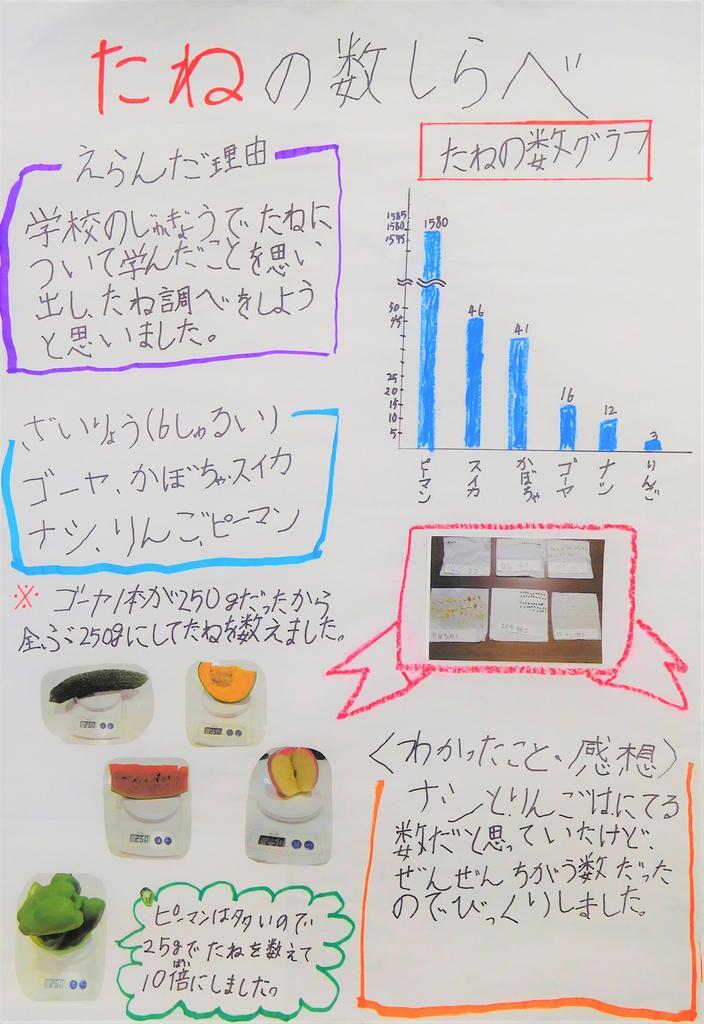 たねの数しらべ
えらんだ理由
学校のじゅぎょうでたねに
ついて学んだことを思い
出し、たね調べをしよう
と思いました。
ざいりょう(6しゅるい)
ゴーヤ、かぼちゃ、スイカ
ナシ、りんご、ピーマン
※ ゴーヤ1本が250gだったから
全ぶ250gにしてたねを数えました。
250
250
250
250
250
ピーマンは多いので
25gでたねを数えて
10倍にしました。
ばい
たねの数グラフ
1585
1580
1575
50
45
25
20
15
10
5
1580
46
41
16
12
3
ピーマン
スイカ
かぼちゃ
ゴーヤ
ナシ
りんご
〈わかったこと・感想〉
ナシとりんごはにてる
数だと思っていたけど、
ぜんぜんちがう数だった
のでびっくりしました。